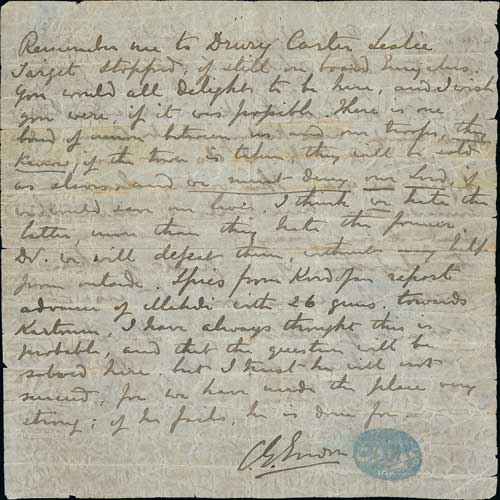 Remember me to Drury Carter Leslie
Target stopped, if still on board Euryalus.
You would all delight to be here, and I wish
you were, if it was possible. There is one
bond of union between us and our troops, they
know if the town is taken, they will be sold
as slaves, and we must deny our Lord, if
we would save our lives. I think we hate the
latter, more than they hate the former.
D.V. we will defeat them, without any help
from outside. Spies from Kordofan report
advance of Mahdi with 26 guns, towards
Kartoum, I have always thought this is
probable, and that the question will be
solved here. but I trust he will not
succeed, for we have made the place very
strong; if he fails, he is done for
C. G. Gordon